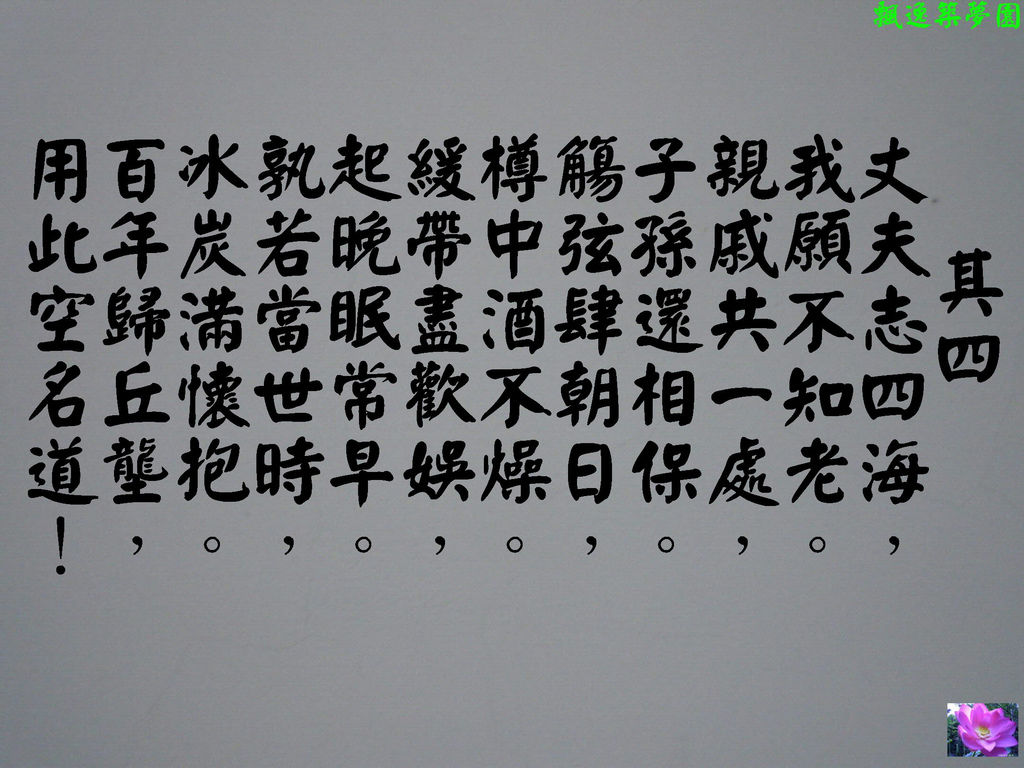 飄逸築夢園
其四
丈夫志四海，
我願不知老。
親戚共一處，
子孫還相保。
觴弦肆朝日，
樽中酒不燥。
緩帶盡歡娛，
起晚眠常早。
孰若當世時，
冰炭滿懷抱。
百年歸丘壟，
用此空名道！